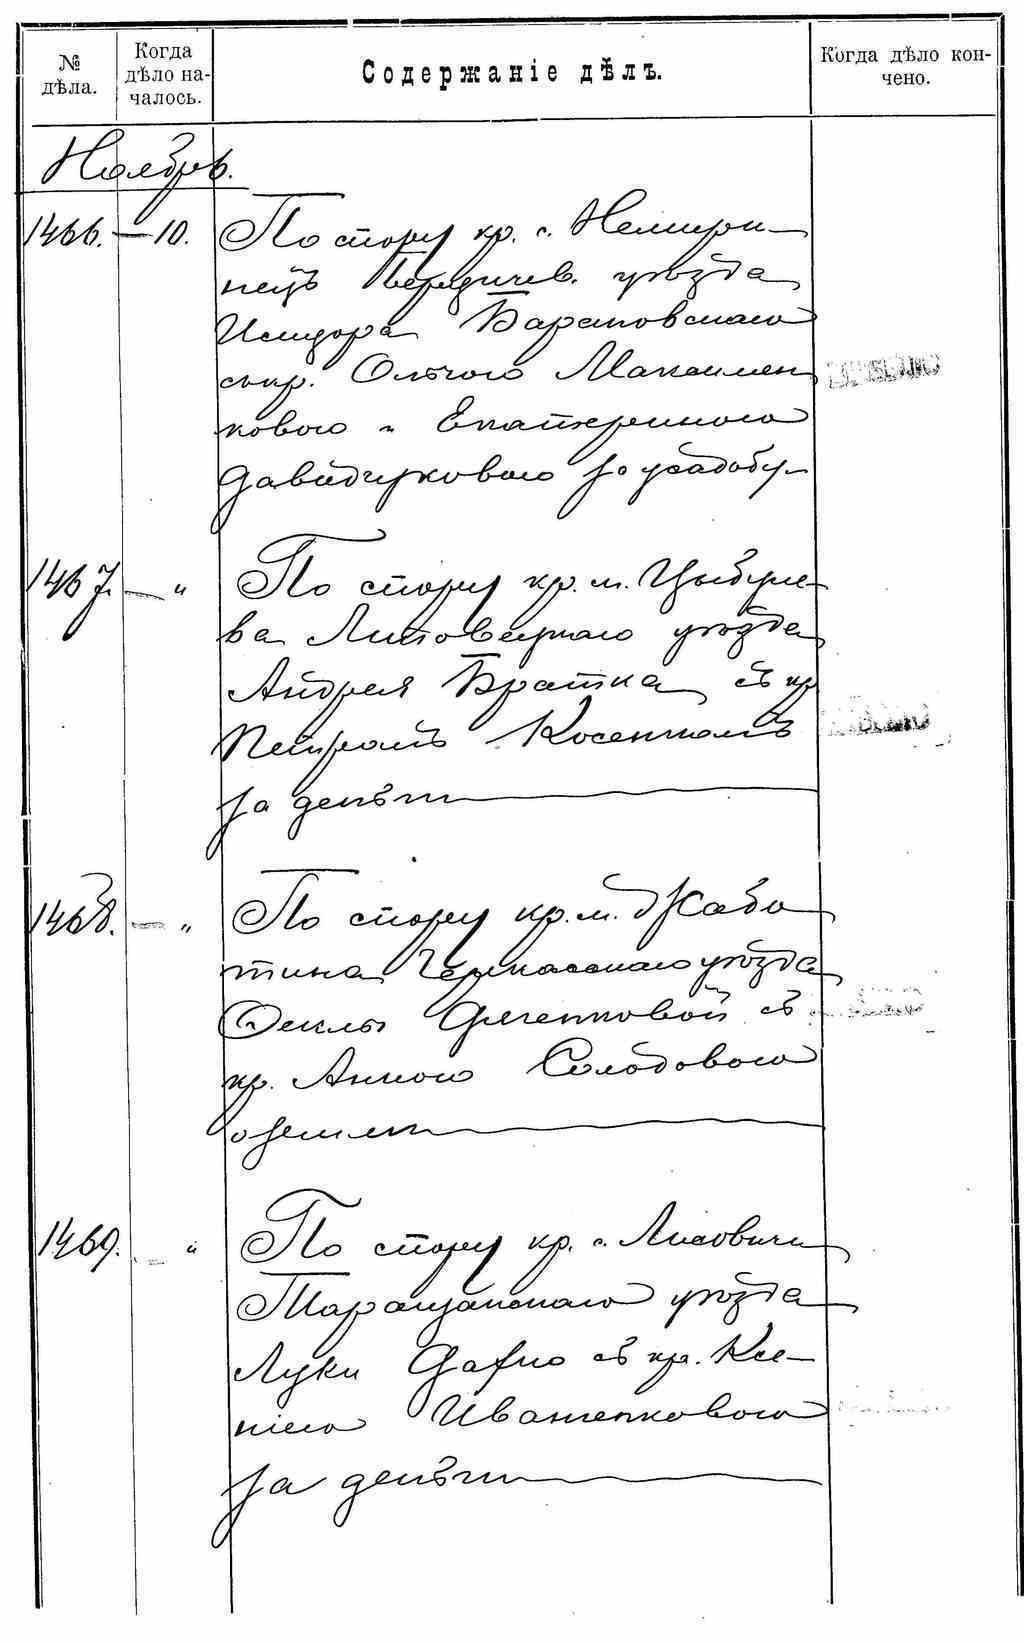 № дѣла.
Когда дѣло на-
чалось.
Содержаніе дѣлъ.
Когда дѣло кон-
чено.
Ноябрь.
1466. — 10. По спору кр. с. Немирин-
нецъ Бердичев. уѣзда
Исидора Барановскаго
съ кр. Ольгою Максимен-
ковою и Екатериною
Давидчуковою за усадьбу
1467. — " По спору кр. м. Цыбуле-
ва Липовецкаго уѣзда
Андрея Братка съ кр
Петромъ Косенкомъ
за деньги
1468. — " По спору кр. м. Жабо-
тина Черкасскаго уѣзда
Феклы Дяченковой съ
кр. Анною Солодовою
о земли
1469. — " По спору кр. с. Лисовичи
Таращанскаго уѣзда
Луки съ кр. Ксе-
ніею Иваненковою
за деньги